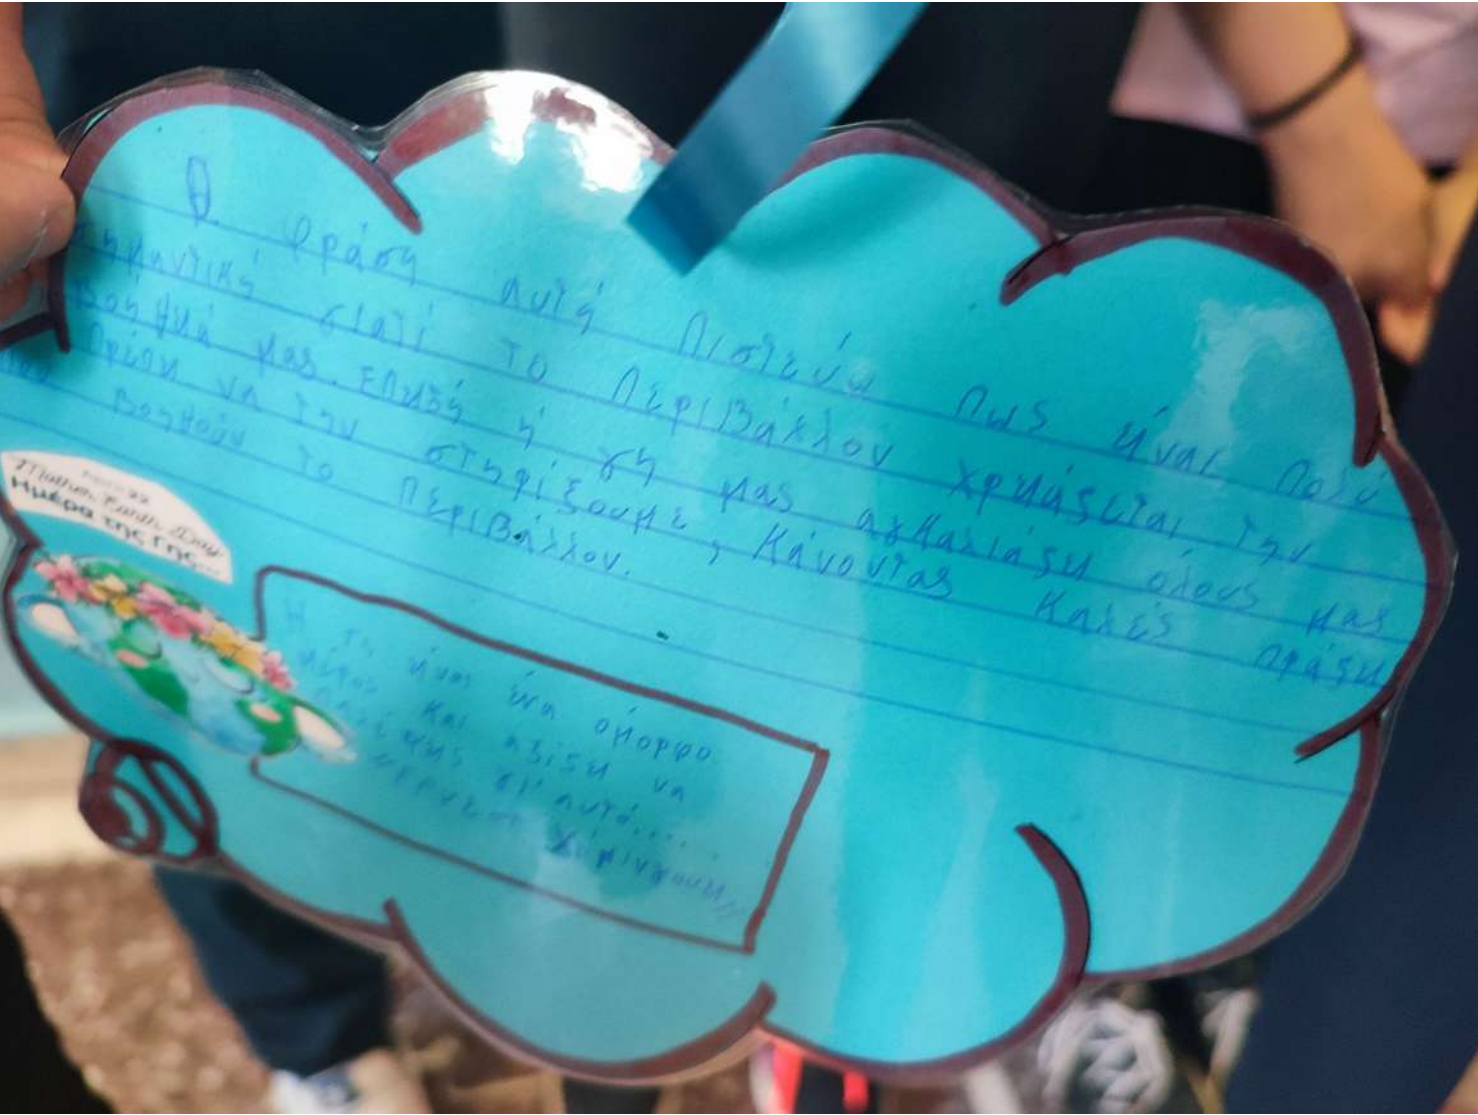 Η φράση αυτή πιστεύω πως είναι πολύ
σημαντική γιατί το περιβάλλον χρειάζεται την
βοήθειά μας. Επειδή ή γη μας αγκαλιάζει όλους μας
πρέπει να την στηρίξουμε, κάνοντας καλές πράξεις
που βοηθούν το περιβάλλον.
22
Mother Earth Day
Ημέρα της Γης...
Η Γη είναι ένα όμορφο
μέρος και αξίζει να
γι' αυτό....
Έρνεστ Χέμινγουεϊ